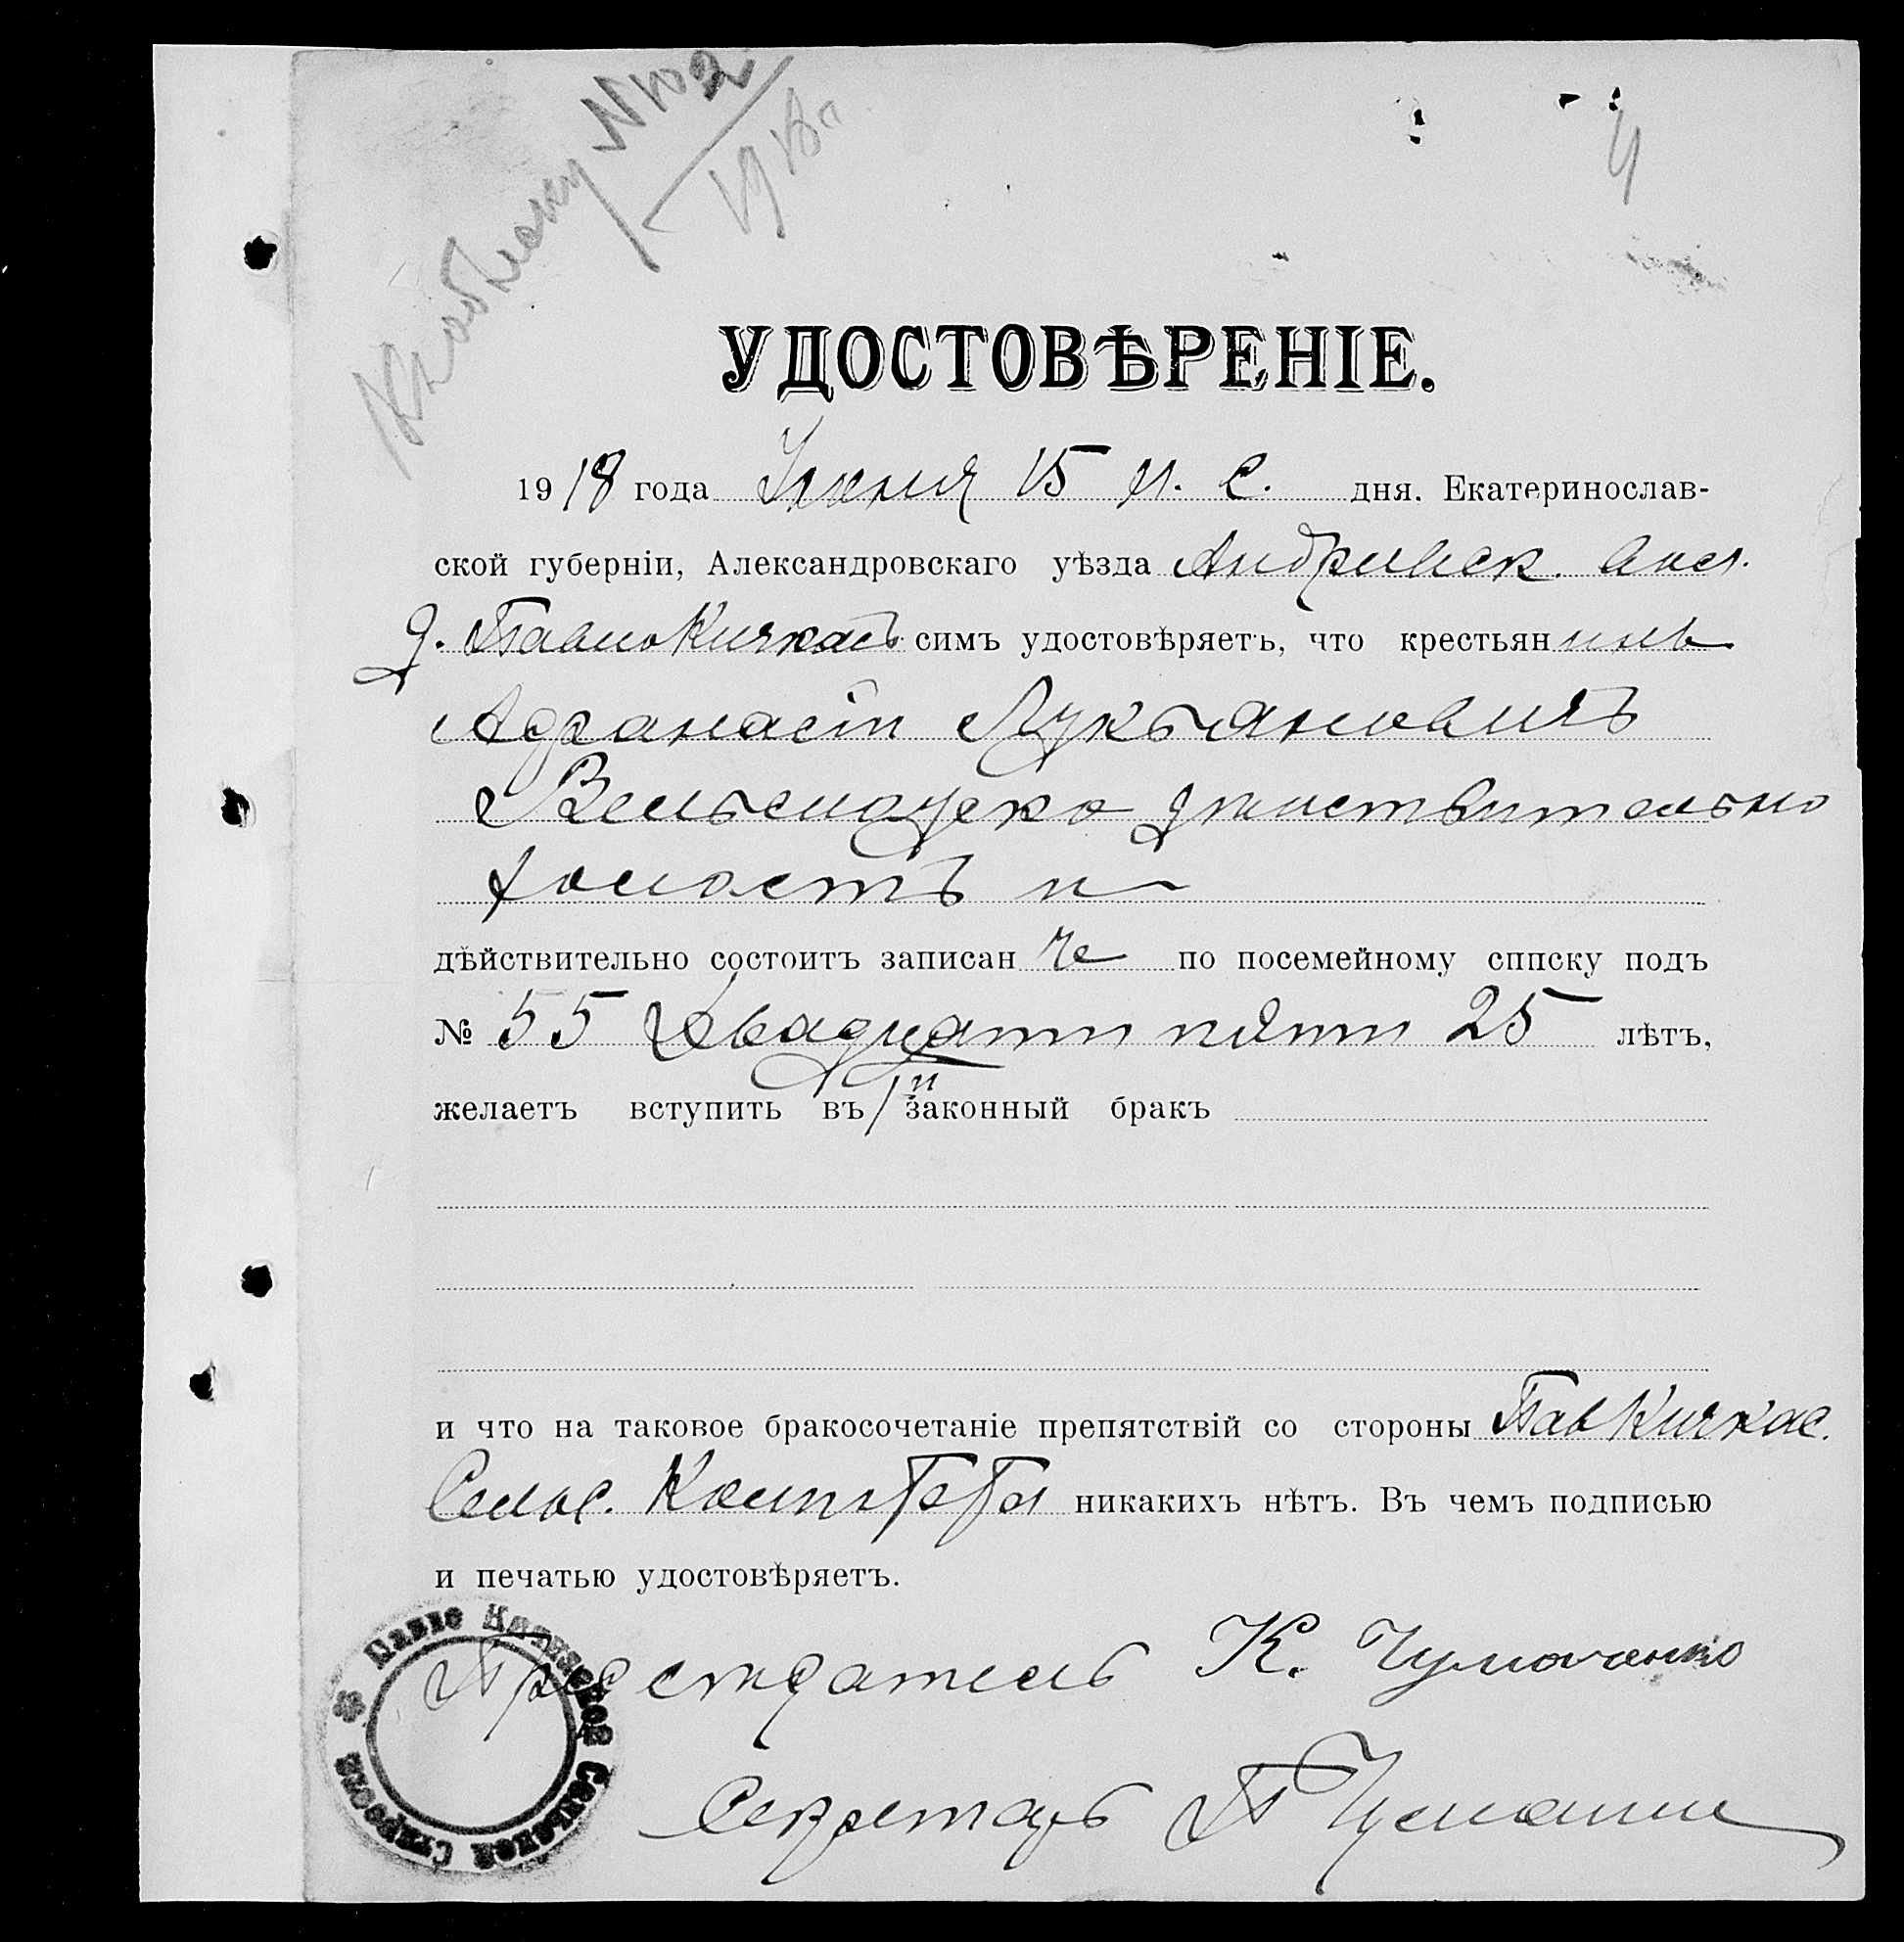 Къ обыску № 102
1918 г.
4
УДОСТОВѢРЕНІЕ.
1918 года Іюня 15 н. с. дня. Екатеринослав-
ской губерніи, Александровскаго уѣзда Андреевск. вол.
д. Павло Кичкасъ симъ удостовѣряетъ, что крестьянинъ
Афанасій Лукьяновичъ
действительно
холостъ и
дѣйствительно состоитъ записан по посемейному списку подъ
№ 55 Двадцати пяти 25 лѣтъ,
желаетъ вступить въ законный бракъ
и что на таковое бракосочетаніе препятствій со стороны Пав Кичкас.
Сельс. Комитета никакихъ нѣтъ. Въ чемъ подписью
и печатью удостовѣряетъ.
Председатель К. Чумаченко
Секретарь
Павло Кичкаской Сельской Старосты